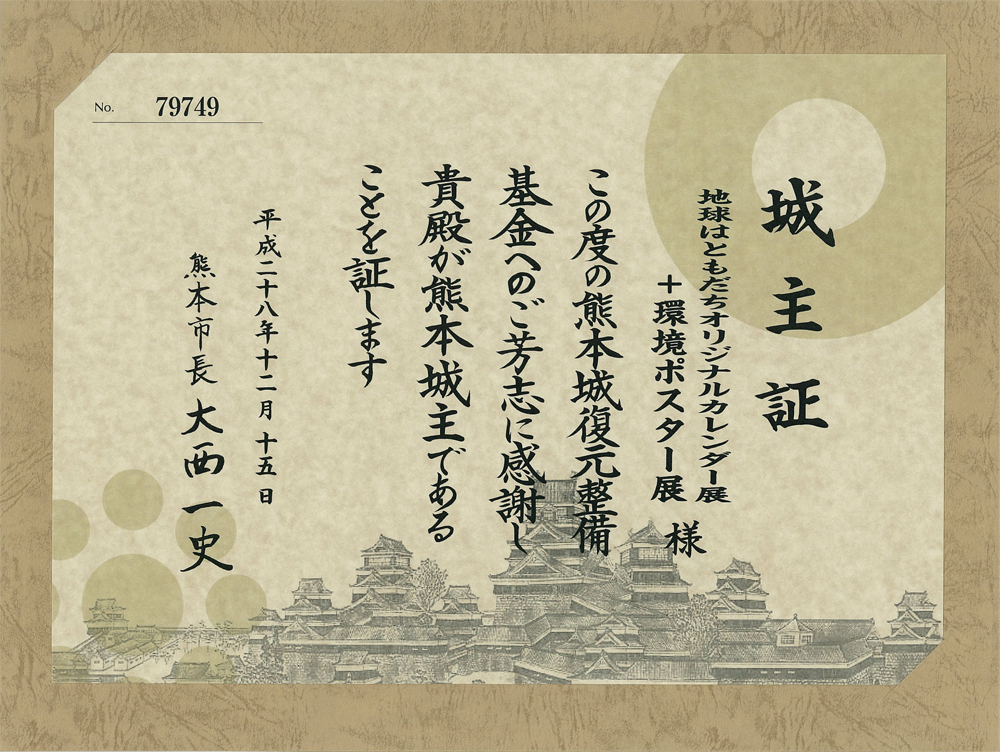 No. 79749
城主証
地球はともだちオリジナルカレンダー展
＋環境ポスター展 様
この度の熊本城復元整備
基金へのご芳志に感謝し
貴殿が熊本城主である
ことを証します
平成二十八年十二月十五日
熊本市長 大西一史